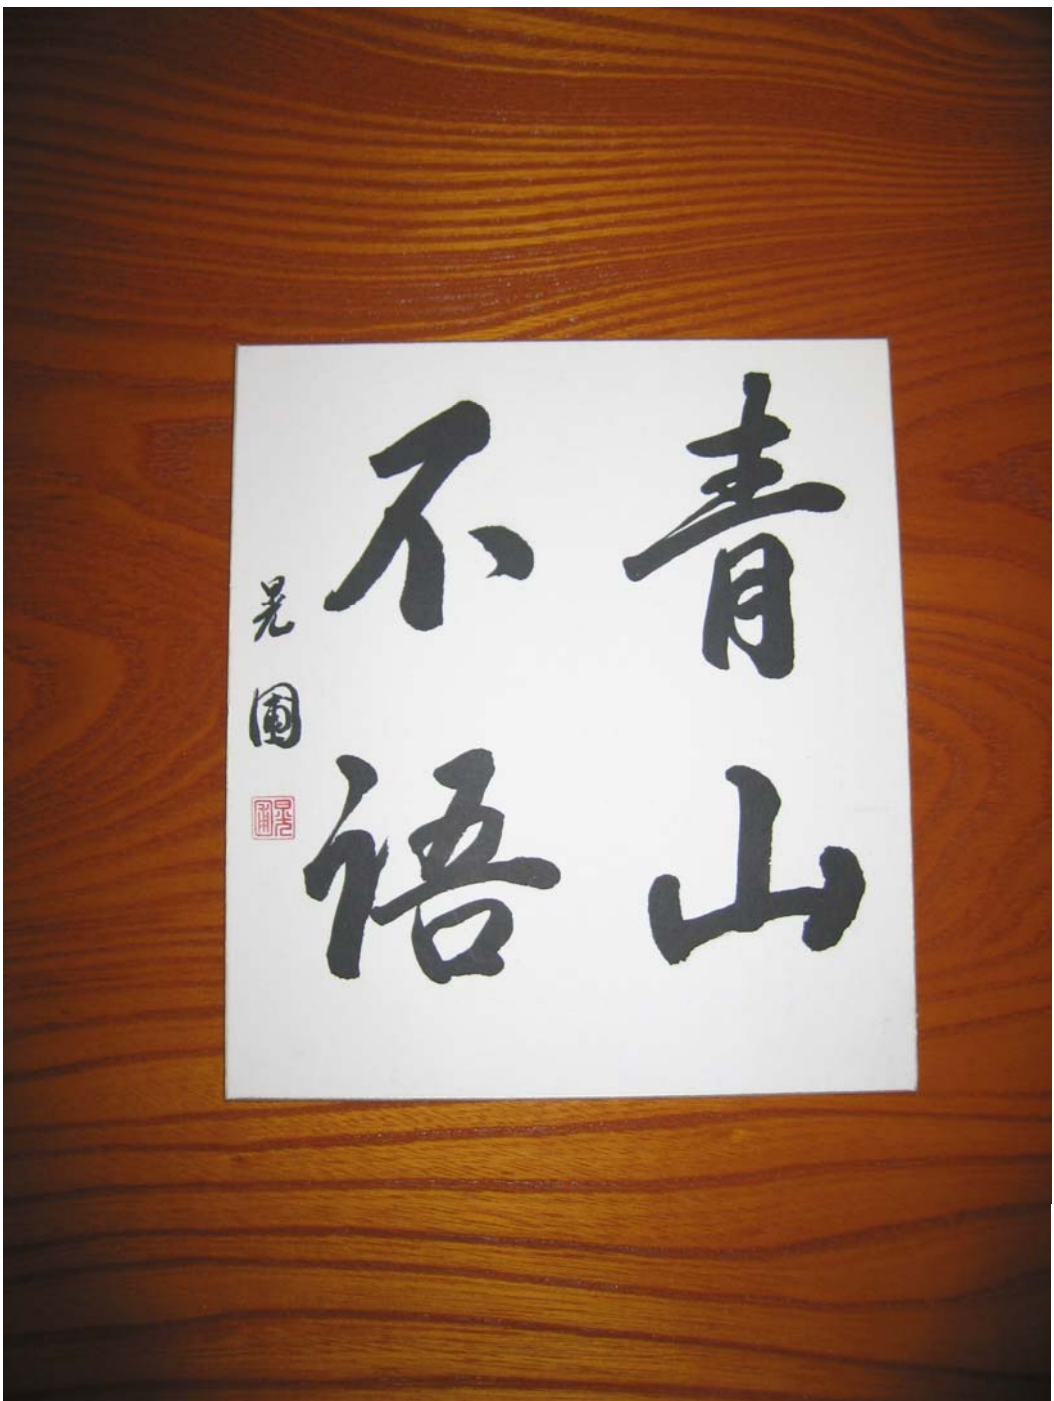 青山
不語
晃圃